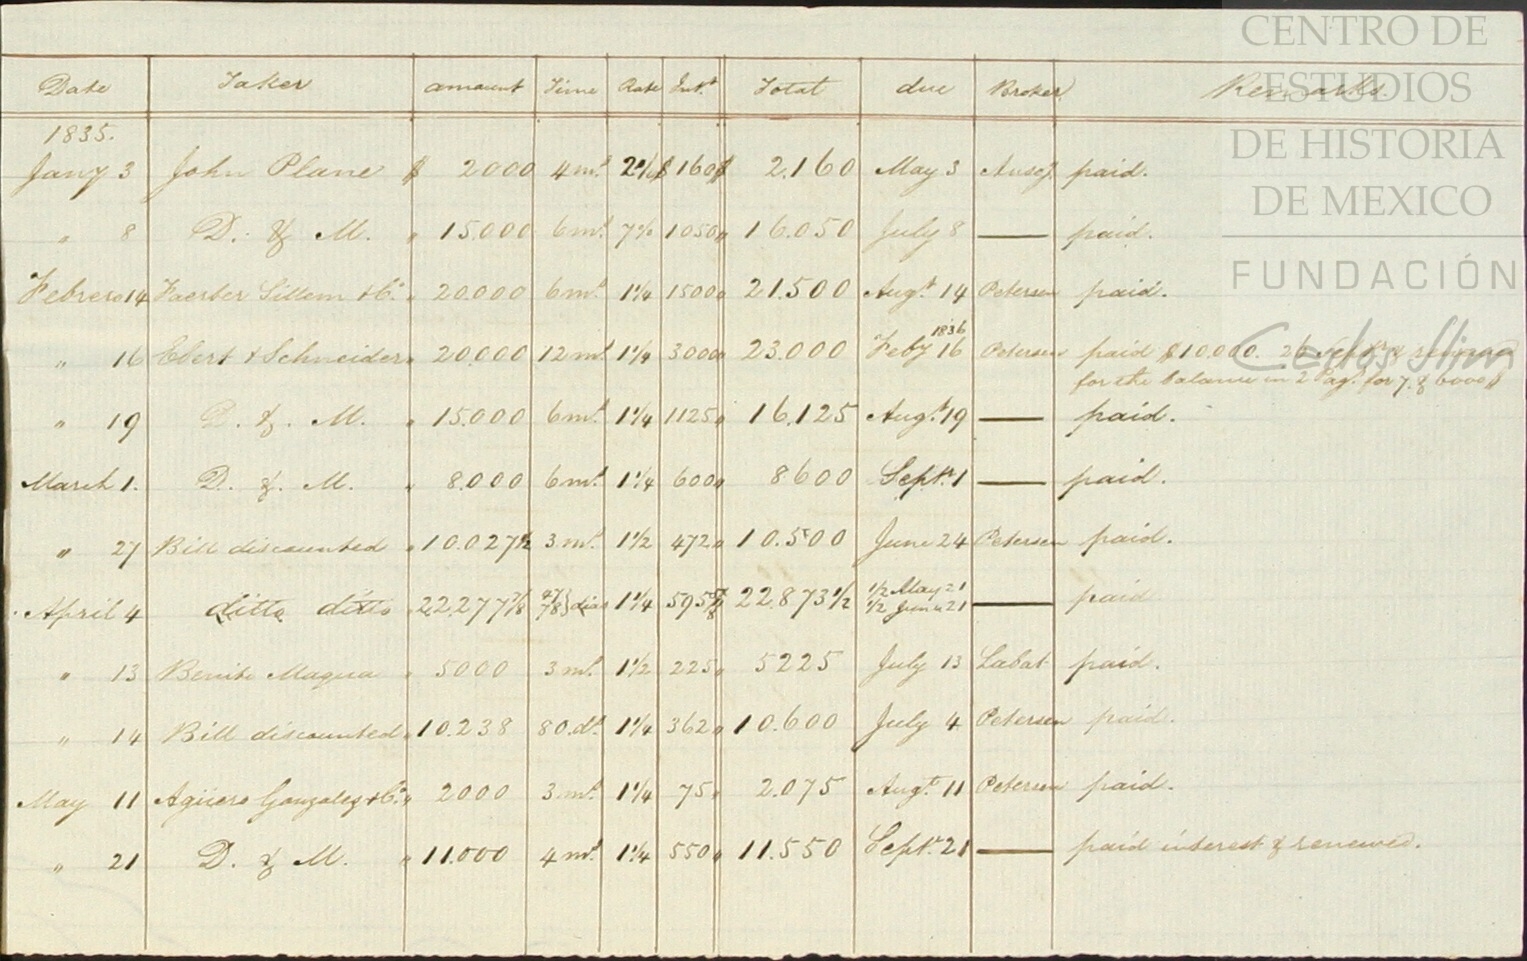 CENTRO DE
ESTUDIOS
DE HISTORIA
DE MEXICO
FUNDACIÓN
Carlos Slim
Date Taker amount Time Rate Int.t Total due Broker Remarks
1835.
Jany 3 John Plane $ 2000 4 m.s 2% $ 160 $ 2.160 May 3 paid.
" 8 D. & M. " 15.000 6 m.s 7% 1050 " 16.050 July 8 — paid.
Febrero 14 Faerber Sillem & Co. " 20.000 6 m.s 1¼ 1500 " 21.500 Augt. 14 Petersen paid.
" 16 Ebert & Schneider " 20.000 12 m.s 1¼ 3000 " 23.000 1836 Feby 16 Petersen paid $10.000. 26 &
for the balance in 2 Pag.s for 7. & 6000 $
" 19 D. & M. " 15.000 6 m.s 1¼ 1125 " 16.125 Augt. 19 — paid.
March 1. D. & M. " 8.000 6 m.s 1¼ 600 " 8600 Sept. 1 — paid.
" 27 Bill discounted " 10.027½ 3 m.s 1½ 472 " 10.500 June 24 Petersen paid.
April 4 ditto ditto 22.277⅞ 47/78} dias 1¼ 595⅝ 22.873½ ½ May 21 ½ June 21 — paid
" 13 Benito Maqua " 5000 3 m.s 1½ 225 " 5225 July 13 Labat paid.
" 14 Bill discounted " 10.238 80.d.s 1¼ 362 " 10.600 July 4 Petersen paid.
May 11 Agüero Gonzalez & Co. " 2000 3 m.s 1¼ 75 " 2.075 Augt. 11 Petersen paid.
" 21 D. & M. " 11.000 4 m.s 1¼ 550 " 11.550 Sept. 21 — paid interest & renewed.